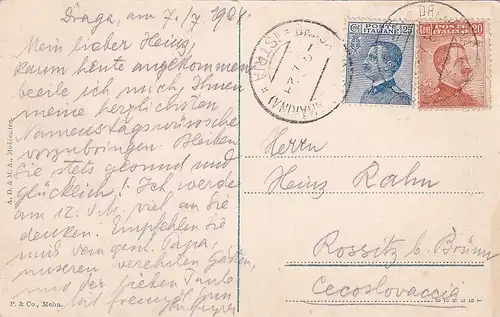 Draga, am 7./7. 1924.
Mein lieber Heinz,
Kaum heute angekommen
beeile ich mich, Ihnen
meine herzlichsten
Namenstagswünsche
vorzubringen. Bleiben
Sie stets gesund und
glücklich! Ich werde
am 12. d. M. viel an Sie
denken. Empfehlen Sie
mich dem gesch. Papa,
unseren verehrten Gästen,
und der lieben Tante
A. D. & M. A., Modřanitz.
P. & Co., Mchn.
POSTE ITALIANE
25
POSTE ITALIANE
20
Herrn
Heinz Rahn
Rossitz b. Brünn
Cecoslovaccia